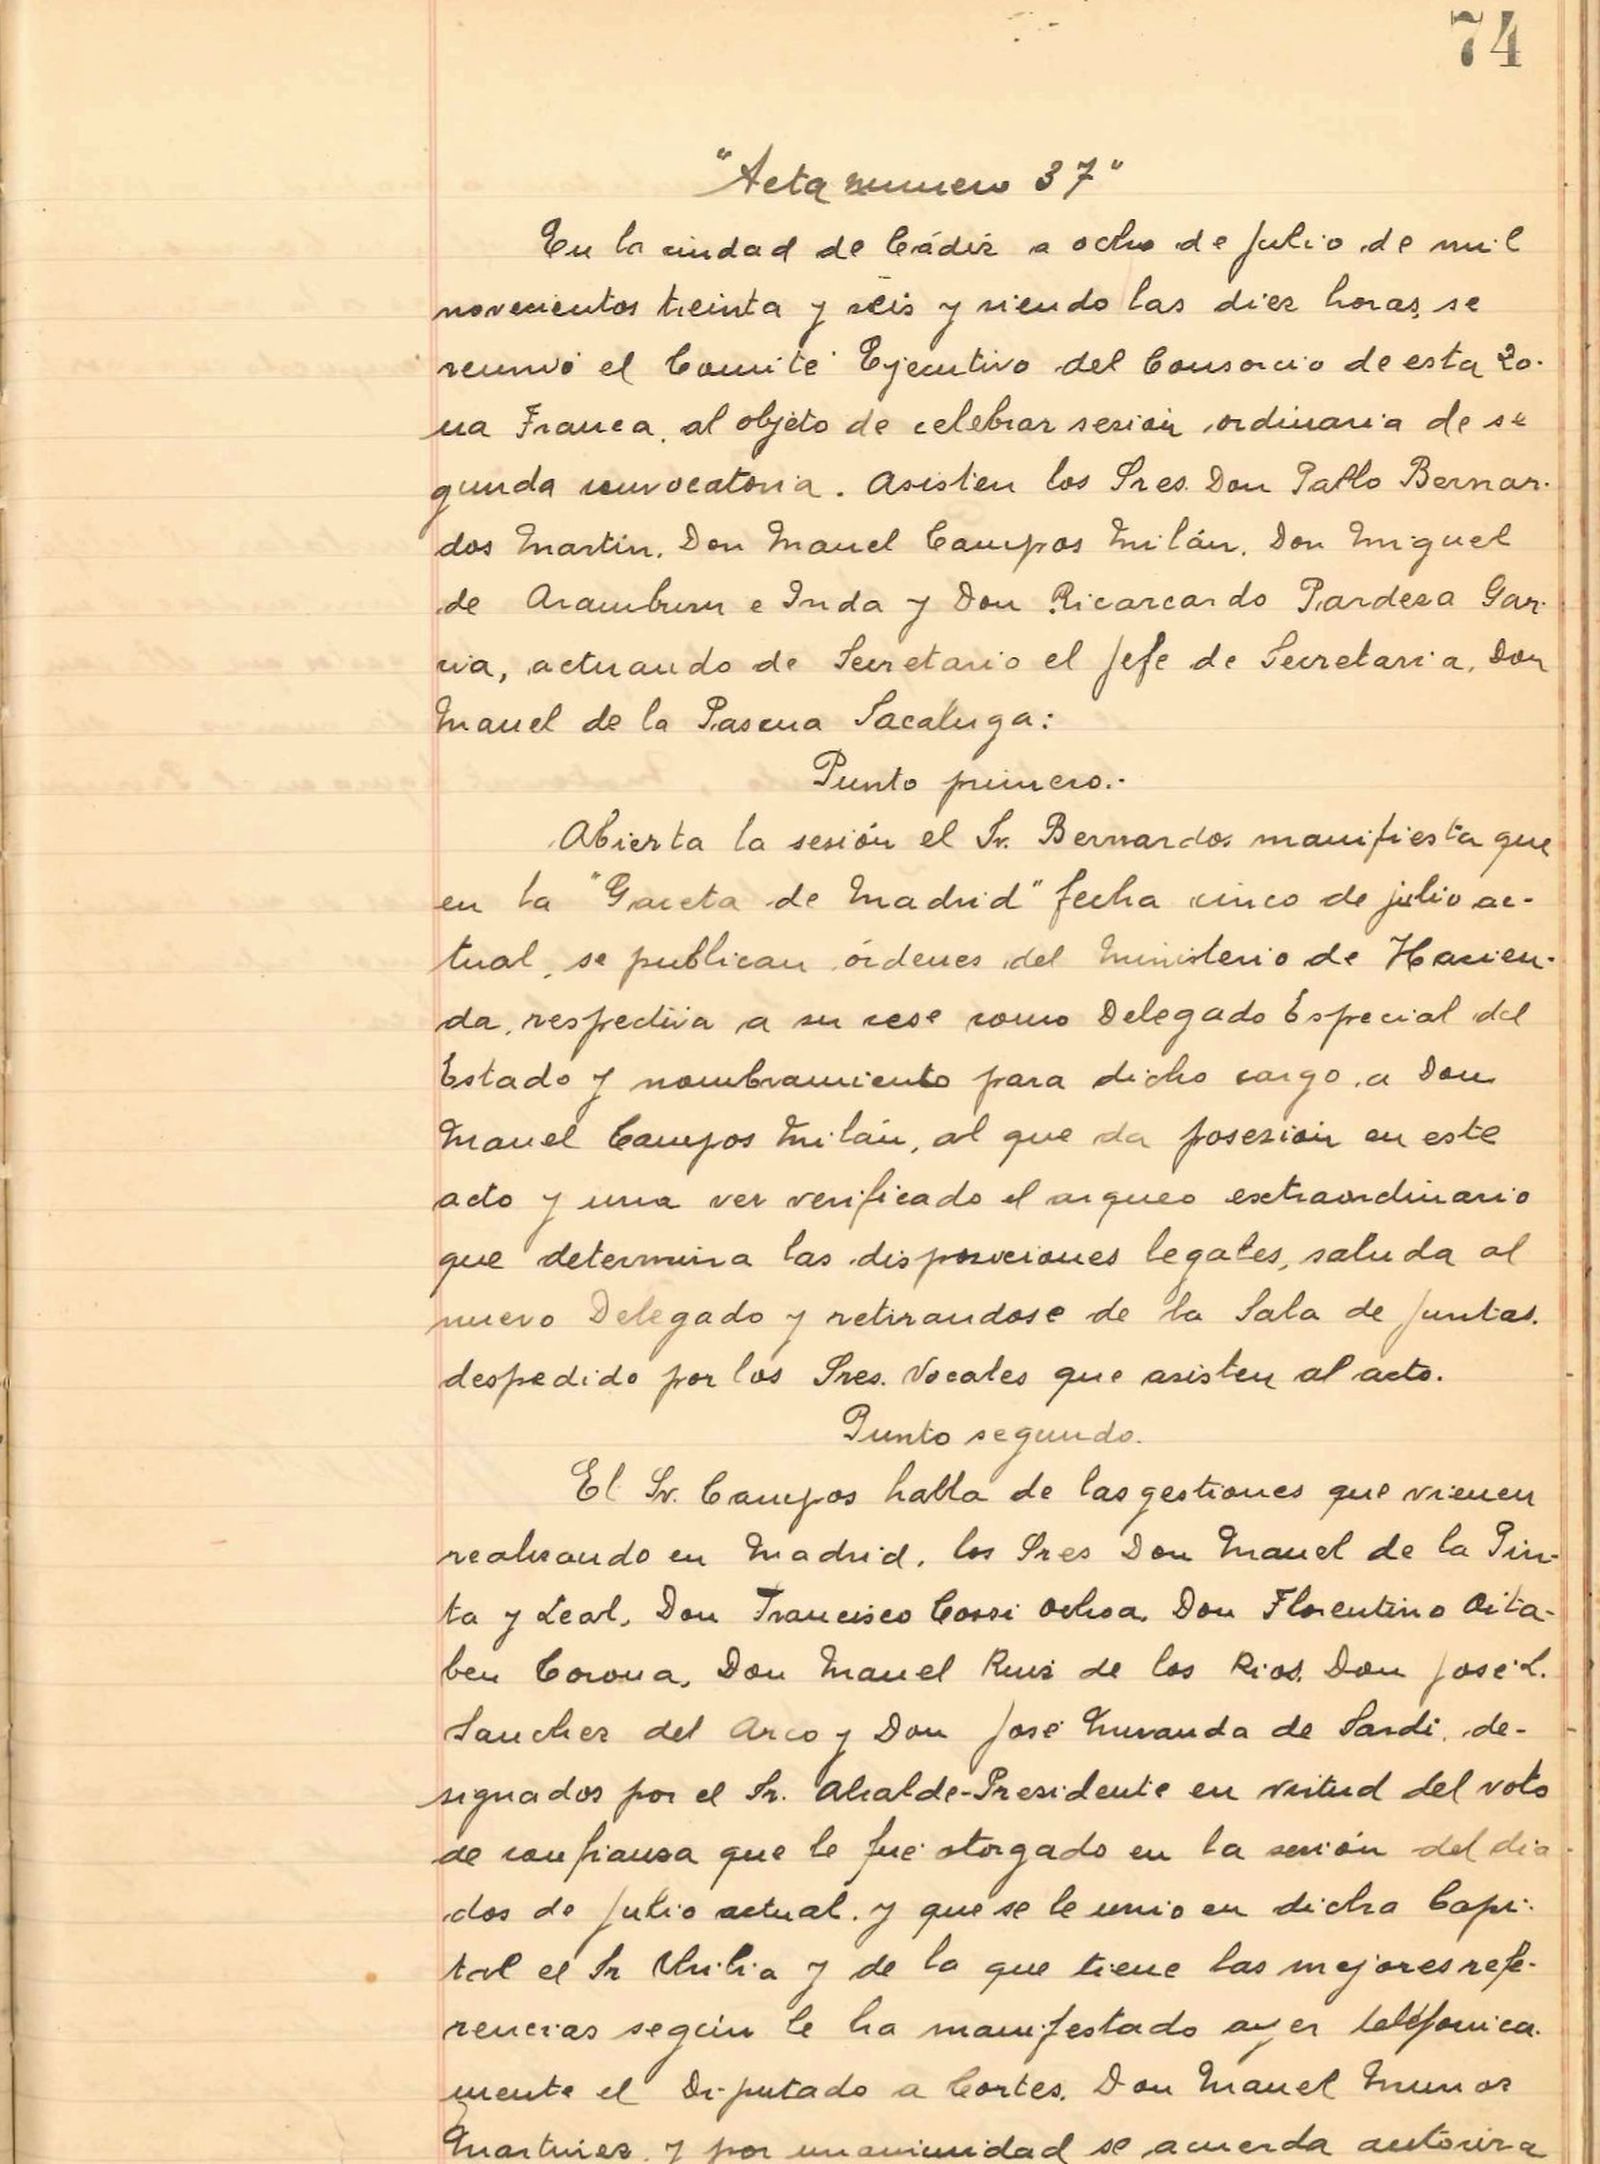 74
"Acta numero 37"
En la ciudad de Cádiz a ocho de Julio de mil
novecientos treinta y seis y siendo las diez horas, se
reunió el Comité Ejecutivo del Consorcio de esta Zo-
na Franca, al objeto de celebrar sesión ordinaria de se
gunda convocatoria. Asisten los Sres. Don Pablo Bernar-
dos Martin, Don Manuel Campos Milán, Don Miguel
de Aramburu e Inda y Don Ricarcardo Pardeza Gar-
cia, actuando de Secretario el Jefe de Secretaria, Don
Manuel de la Pascua Sacaluga:
Punto primero.-
Abierta la sesión el Sr. Bernardos manifiesta que
en la "Gaceta de Madrid" fecha cinco de julio ac-
tual, se publican órdenes del Ministerio de Hacien-
da, respectiva a su cese como Delegado Especial del
Estado y nombramiento para dicho cargo, a Don
Manuel Campos Milán, al que da posesión en este
acto y una vez verificado el arqueo extraordinario
que determina las disposiciones legales, saluda al
nuevo Delegado y retirandose de la Sala de Juntas,
despedido por los Sres. Vocales que asisten al acto.
Punto segundo.
El Sr. Campos habla de las gestiones que vienen
realizando en Madrid, los Sres Don Manuel de la Pin-
ta y Leal, Don Francisco Cossi Ochoa, Don Florentino Oita-
ben Corona, Don Manuel Ruiz de los Rios, Don José L.
Sanchez del Arco y Don José Miranda de Sardi, de-
signados por el Sr. Alcalde-Presidente en virtud del voto
de confianza que le fué otorgado en la sesión del dia
dos de Julio actual, y que se le unio en dicha Capi-
tal el Sr y de la que tiene las mejores refe-
rencias según le ha manifestado ayer telefonica-
mente el Diputado a Cortes, Don Manuel Munoz
Martinez, y por unanimidad se acuerda autoriza